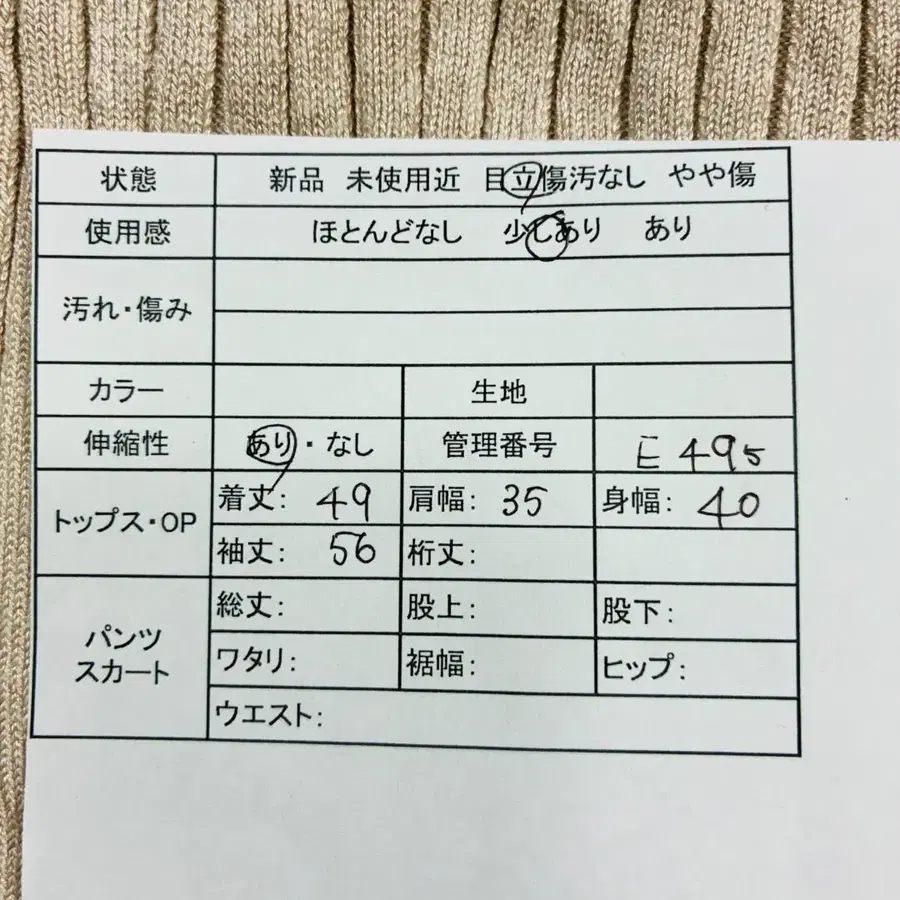 状態 新品 未使用近 目立傷汚なし やや傷
使用感 ほとんどなし 少しあり あり
汚れ・傷み
カラー 生地
伸縮性 あり・なし 管理番号 E495
トップス・OP 着丈: 49 肩幅: 35 身幅: 40
袖丈: 56 桁丈:
パンツ スカート 総丈: 股上: 股下:
ワタリ: 裾幅: ヒップ:
ウエスト: